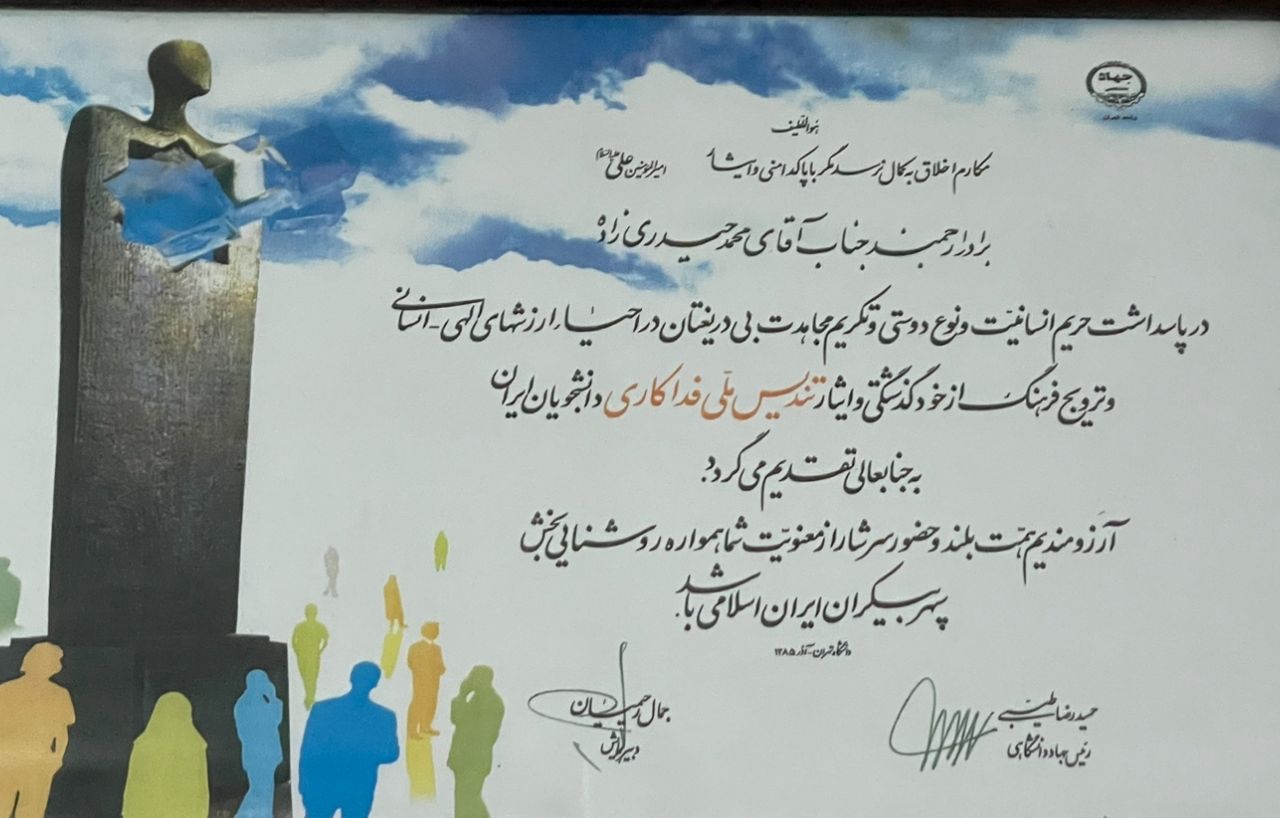 جهاد
هواللطیف
مکارم اخلاق به کمال نرسد مگر با پاکدامنی و ایثار امیرالمومنین علی علیه‌السلام
برادر ارجمند جناب آقای محمد حیدری زاده
در پاسداشت حریم انسانیّت و نوع دوستی و تکریم مجاهدت بی دریغتان در احیاء ارزشهای الهی - انسانی
و ترویج فرهنگ از خود گذشتگی و ایثار تندیس ملّی فداکاری دانشجویان ایران
به جنابعالی تقدیم می گردد.
آرزومندیم همّت بلند و حضور سرشار از معنویّت شما همواره روشنایی بخش
سپهر بیکران ایران اسلامی باشد.
دانشگاه تهران - آذر ۱۳۸۵
حمیدرضا طیبی
رئیس جهاد دانشگاهی
جمال رحیمیان
دبیر همایش